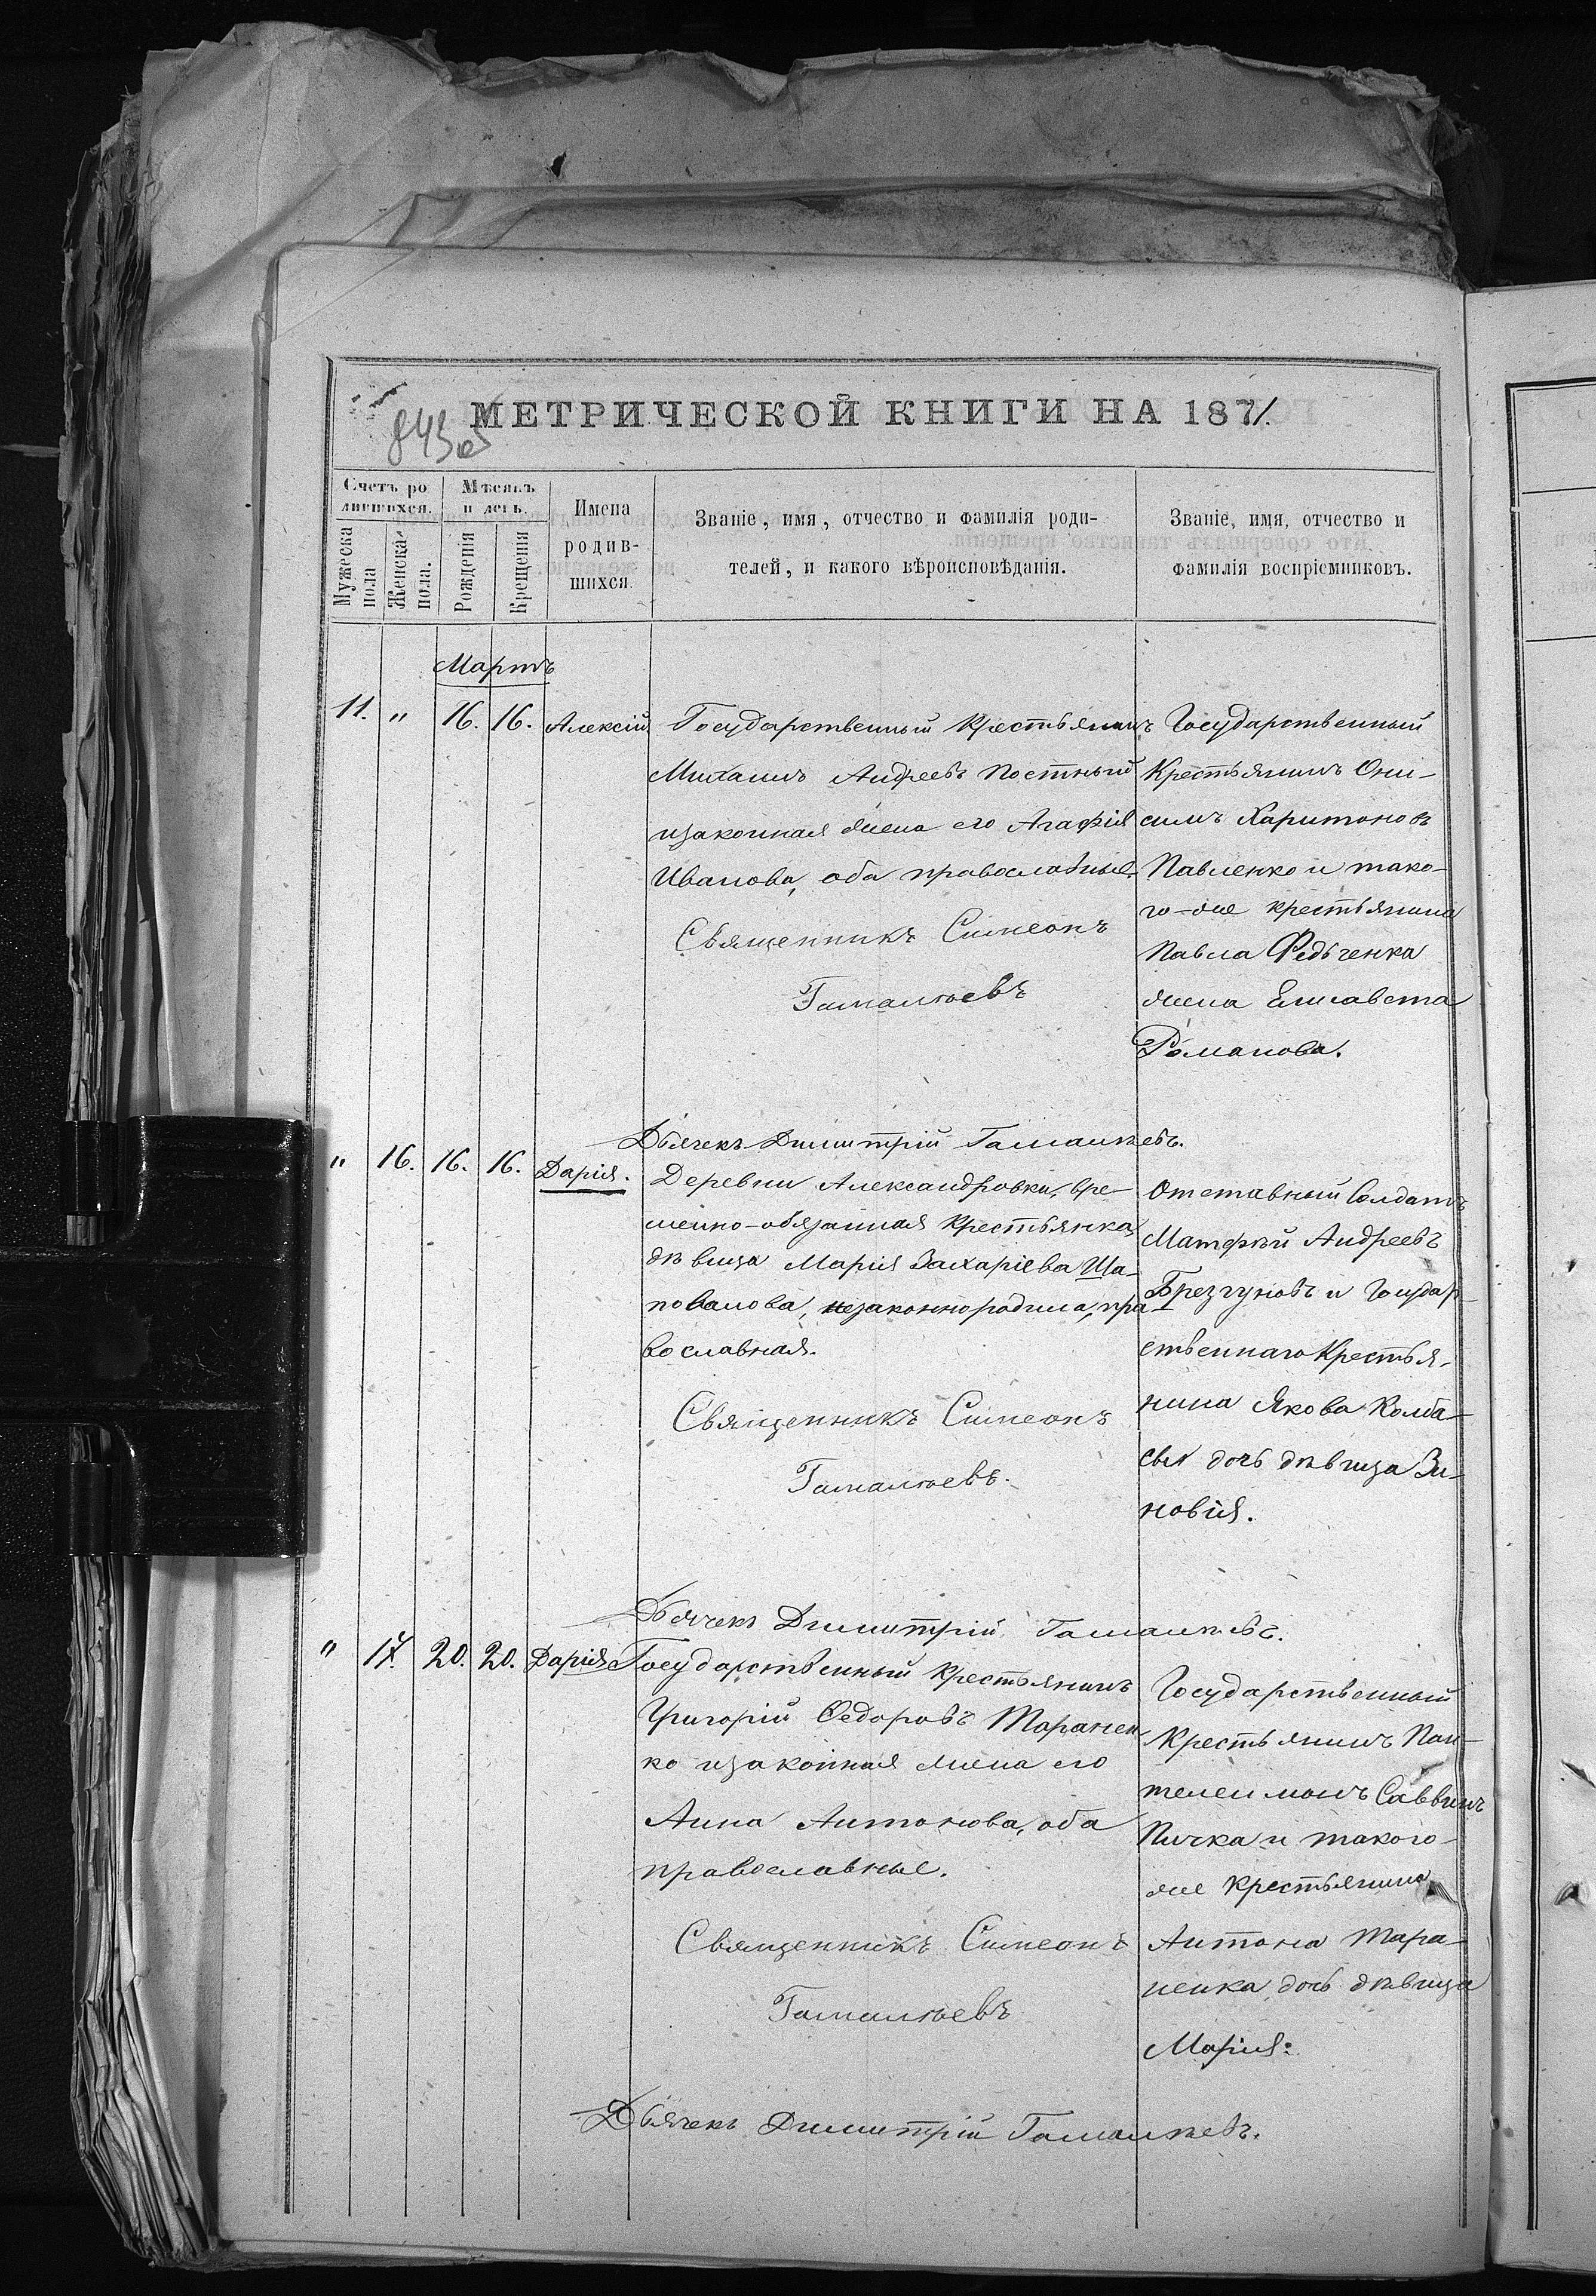 843об
МЕТРИЧЕСКОЙ КНИГИ НА 1871.
Счетъ ро
дившихся.
Мѣсяцъ
и день.
Имена
родив-
шихся.
Званіе, имя, отчество и фамилія роди-
телей, и какого вѣроисповѣданія.
Званіе, имя, отчество и
фамилія воспріемниковъ.
Мужеска
пола
Женска
пола.
Рожденія
Крещенія
Мартъ
11. " 16. 16. Алексій.
Государственный Крестьянинъ
Михаилъ Андреевъ Постный
изаконная жена его Агафія
Иванова, оба православные.
Священникъ Симеонъ
Гамалѣевъ
Государственный
Крестьянинъ Они-
симъ Харитоновъ
Павленко и тако-
го-же крестьянина
Павла Федьченка
жена Елисавета
Романова.
Дьячекъ Димитрій Гамалѣевъ.
" 16. 16. 16. Дарія.
Деревни Александровки, вре-
менно-обязанная Крестьянка
дѣвица Марія Захаріева Ша-
повалова, незаконнородила, пра
вославная.
Священникъ Симеонъ
Гамалѣевъ.
Отставный Солдатъ
Матфѣй Андреевъ
Брезгуновъ и Государ-
ственнаго Крестья-
нина Якова Колба-
сы дочь дѣвица Зи-
новія.
Дьячекъ Димитрій Гамалѣевъ.
" 17. 20. 20. Дарія
Государственный Крестьянинъ
Григорій Ѳедоровъ Таранен
ко изаконная жена его
Анна Антонова, оба
православные.
Священникъ Симеонъ
Гамалѣевъ
Государственный
Крестьянинъ Пан-
телеимонъ Саввинъ
Пичка и такого-
же крестьянина
Антона Тара-
ненка дочь дѣвица
Марія.
Дьячекъ Димитрій Гамалѣевъ.